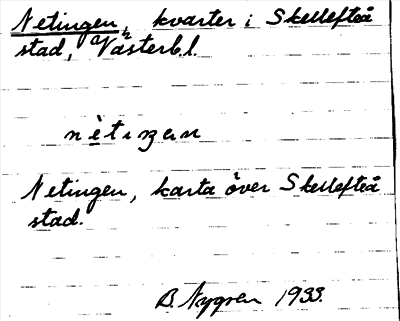 Netingen, kvarter i Skellefteå
stad, Västerb.l.
nètiŋən
Netingen, karta över Skellefteå
stad.
B. Nygren 1933.